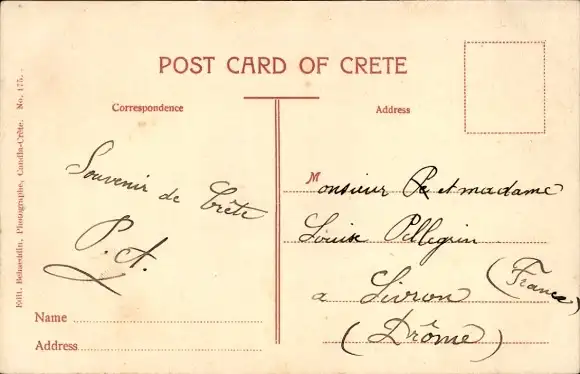 POST CARD OF CRETE
Correspondence
Address
Souvenir de Crête
P. A.
Monsieur Pe et madame
Louise Pellegrin
a Livron (France)
(Drôme)
Name
Address
Edit. Behaeddin, Photographe, Candie-Crête. No. 175.